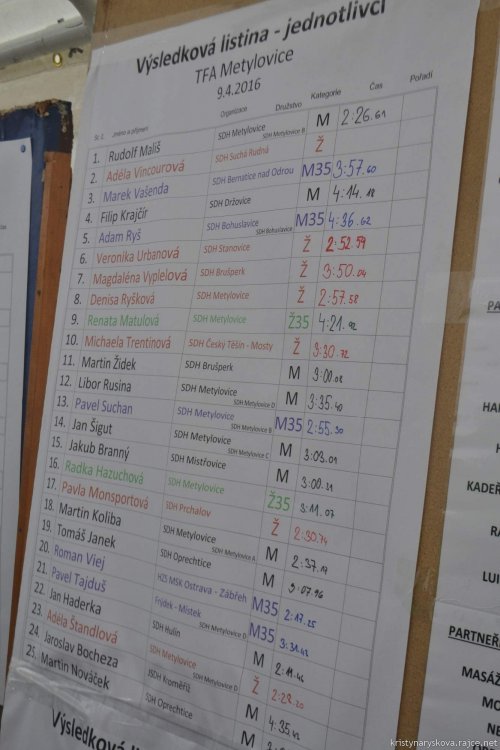 Výsledková listina - jednotlivci
TFA Metylovice
9.4.2016
St. č. Jméno a příjmení Organizace Družstvo Kategorie Čas Pořadí
1. Rudolf Mališ SDH Metylovice SDH Metylovice B M 2:26.61
2. Adéla Vincourová SDH Suchá Rudná Ž
3. Marek Vašenda SDH Bernatice nad Odrou M35 3:57.60
4. Filip Krajčíř SDH Držovice M 4:14.18
5. Adam Ryš SDH Bohuslavice SDH Bohuslavice B M35 4:36.62
6. Veronika Urbanová SDH Stanovice Ž 2:52.59
7. Magdaléna Vyplelová SDH Brušperk Ž 3:50.04
8. Denisa Ryšková SDH Metylovice Ž 2:57.58
9. Renata Matulová SDH Metylovice Ž35 4:21.92
10. Michaela Trentinová SDH Český Těšín - Mosty Ž 3:30.72
11. Martin Židek SDH Brušperk M 3:00.08
12. Libor Rusina SDH Metylovice SDH Metylovice D M 3:35.40
13. Pavel Suchan SDH Metylovice SDH Metylovice B M35 2:55.30
14. Jan Šigut SDH Metylovice SDH Metylovice C M 3:03.01
15. Jakub Branný SDH Mistřovice M 3:00.31
16. Radka Hazuchová SDH Metylovice Ž35 3:11.07
17. Pavla Monsportová SDH Prchalov Ž 2:30.74
18. Martin Koliba SDH Metylovice SDH Metylovice A M 2:37.19
19. Tomáš Janek SDH Oprechtice M 3:07.96
20. Roman Viej HZS MSK Ostrava - Zábřeh M35 2:17.25
21. Pavel Tajduš Frýdek - Místek SDH Metylovice D M35 3:31.43
22. Jan Haderka SDH Hulín M 2:11.46
23. Adéla Štandlová SDH Metylovice SDH Metylovice D Ž 2:28.20
24. Jaroslav Bocheza JSDH Kroměříž M 4:35.43
25. Martin Nováček SDH Oprechtice M
Výsledková listina
PARTNEŘ
MASÁŽ
KADEŘ
kristynaryskova.rajce.net